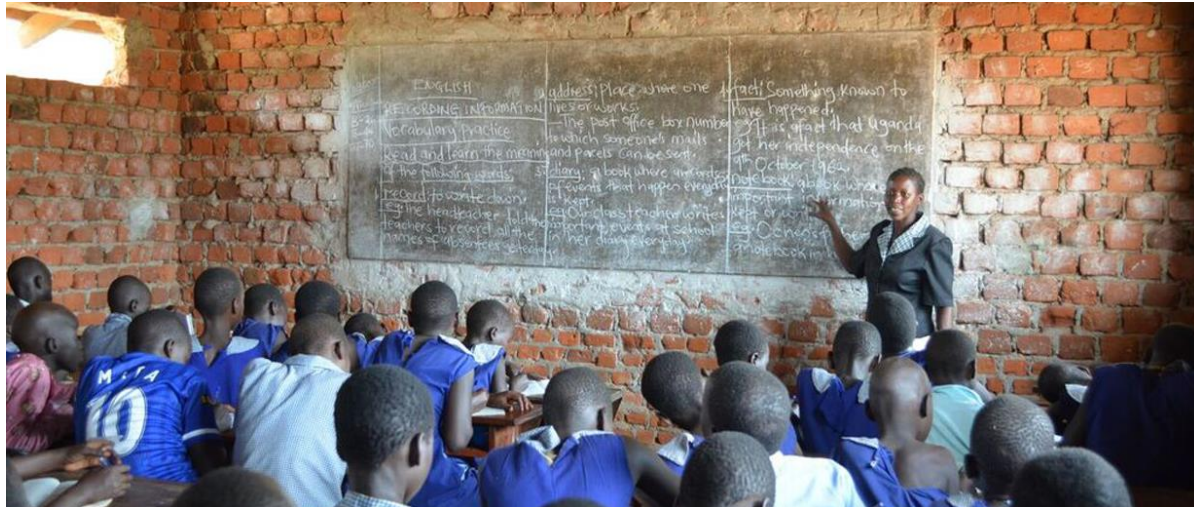 ENGLISH
RECORDING INFORMATION
Vocabulary practice
Read and learn the meaning
of the following words.
record: to write down
eg the headteacher told the
teachers to record all the
names of absentees
address: Place where one
lives or works.
The post office box number
to which someone's mails
and parcels can be sent.
diary: a book where
of events that happen everyday
is kept.
eg Our class teacher writes
important events at school
in her diary everyday
fact: Something known to
have happened.
eg It is a fact that Uganda
got her independence on the
9th October 1962
note book: a book where
important
kept or
eg
notebook in
MATA
10